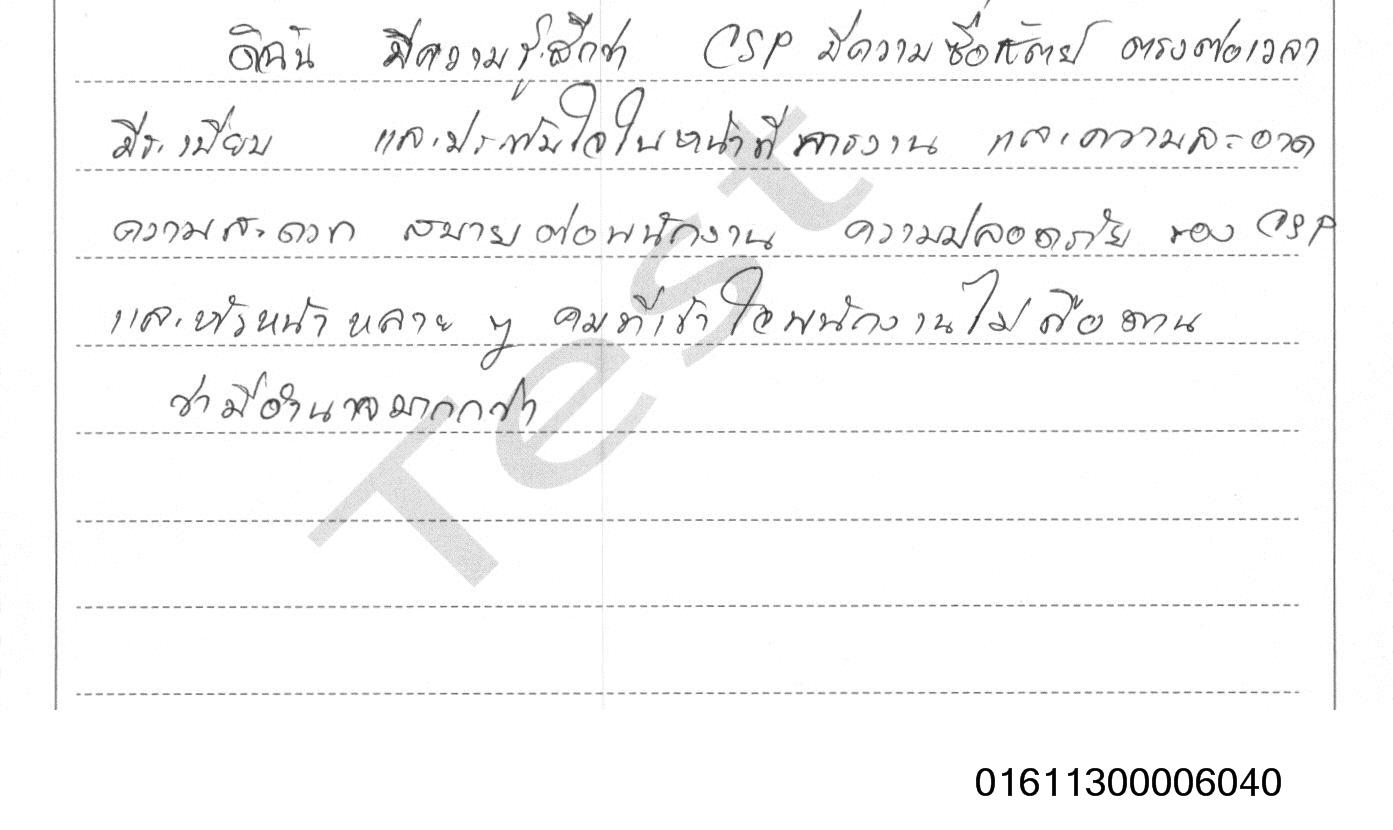 ดิฉัน มีความรู้สึกว่า CSP มีความซื่อสัตย์ ตรงต่อเวลา
มีระเบียบ และประทับใจในหน้าที่การงาน และความสะอาด
ความสะดวก สบายต่อพนักงาน ความปลอดภัย ของ CSP
และหัวหน้าหลาย ๆ คนที่เข้าใจพนักงานไม่ถือตน
ว่ามีอำนาจมากกว่า
Test
01611300006040